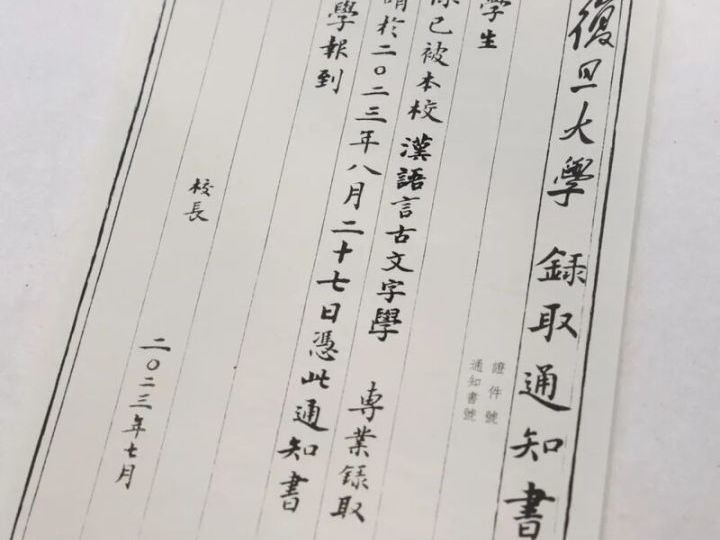 復旦大學 錄取通知書
證件號
通知書號
學生
已被本校 漢語言古文字學 專業錄取
於二〇二三年八月二十七日憑此通知書
學報到
校長
二〇二三年七月